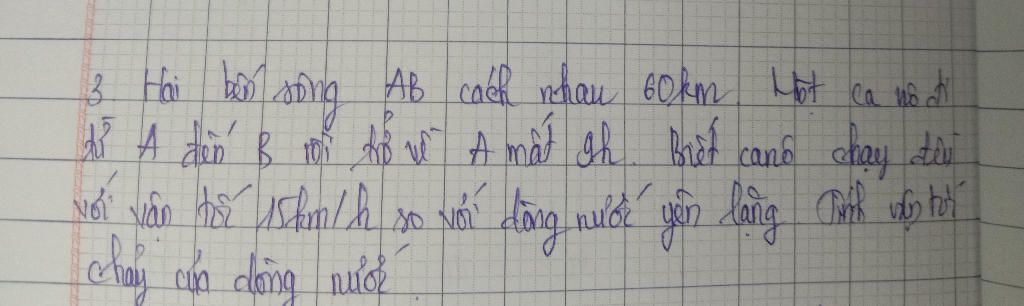 3 Hai bến sông AB cách nhau 60km Một ca nô đi
từ A đến B rồi trở về A mất 9h. Biết canô chạy đều
với vận tốc 15km/h so với dòng nước yên lặng Tính vận tốc
chảy của dòng nước.